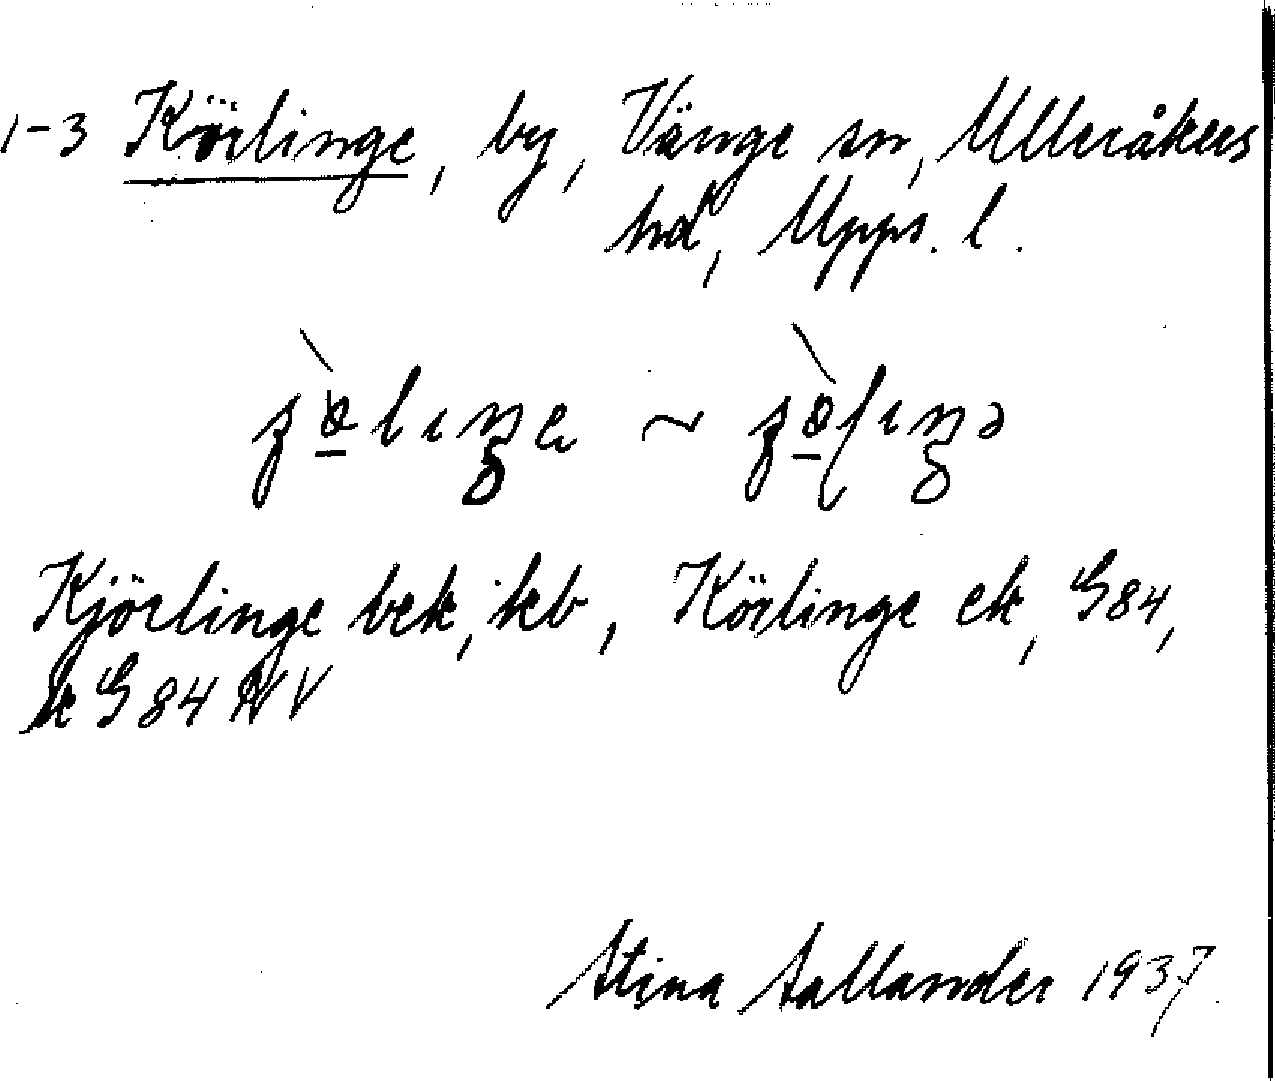 1-3 Körlinge, by, Vänge sn, Ulleråkers
hd, Upps. l.
Kjörlinge bek, kb, Körlinge ek, G84,
k G 84 NV
Stina Sallander 1937.